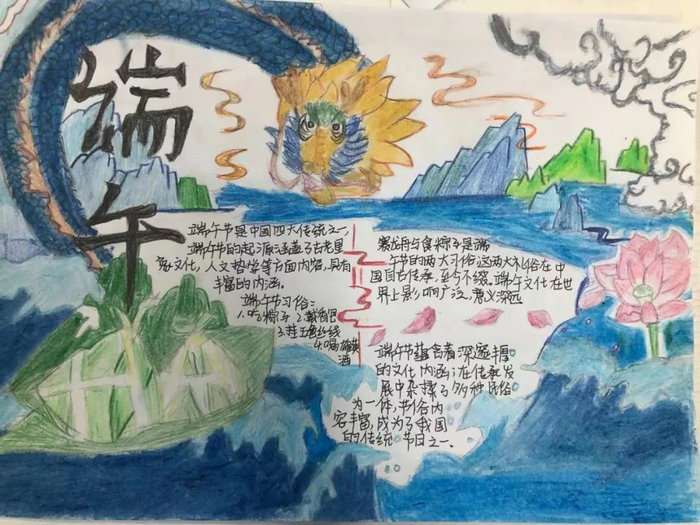 端午
端午节是中国四大传统之一,
端午节的起源涵盖了古老星
象文化,人文哲学等方面内容,具有
丰富的内涵。
端午节习俗:
1.吃粽子 2.戴香包
3.挂五色丝线
4.喝雄黄
酒
赛龙舟与食粽子是端
午节的两大习俗这两大礼俗在中
国自古传承,至今不缀。端午文化在世
界上影响广泛,意义深远
端午节蕴含着深邃丰厚
的文化内涵,在传承发
展中杂揉了多种民俗
为一体,节俗内
容丰富,成为了我国
的传统节日之一、